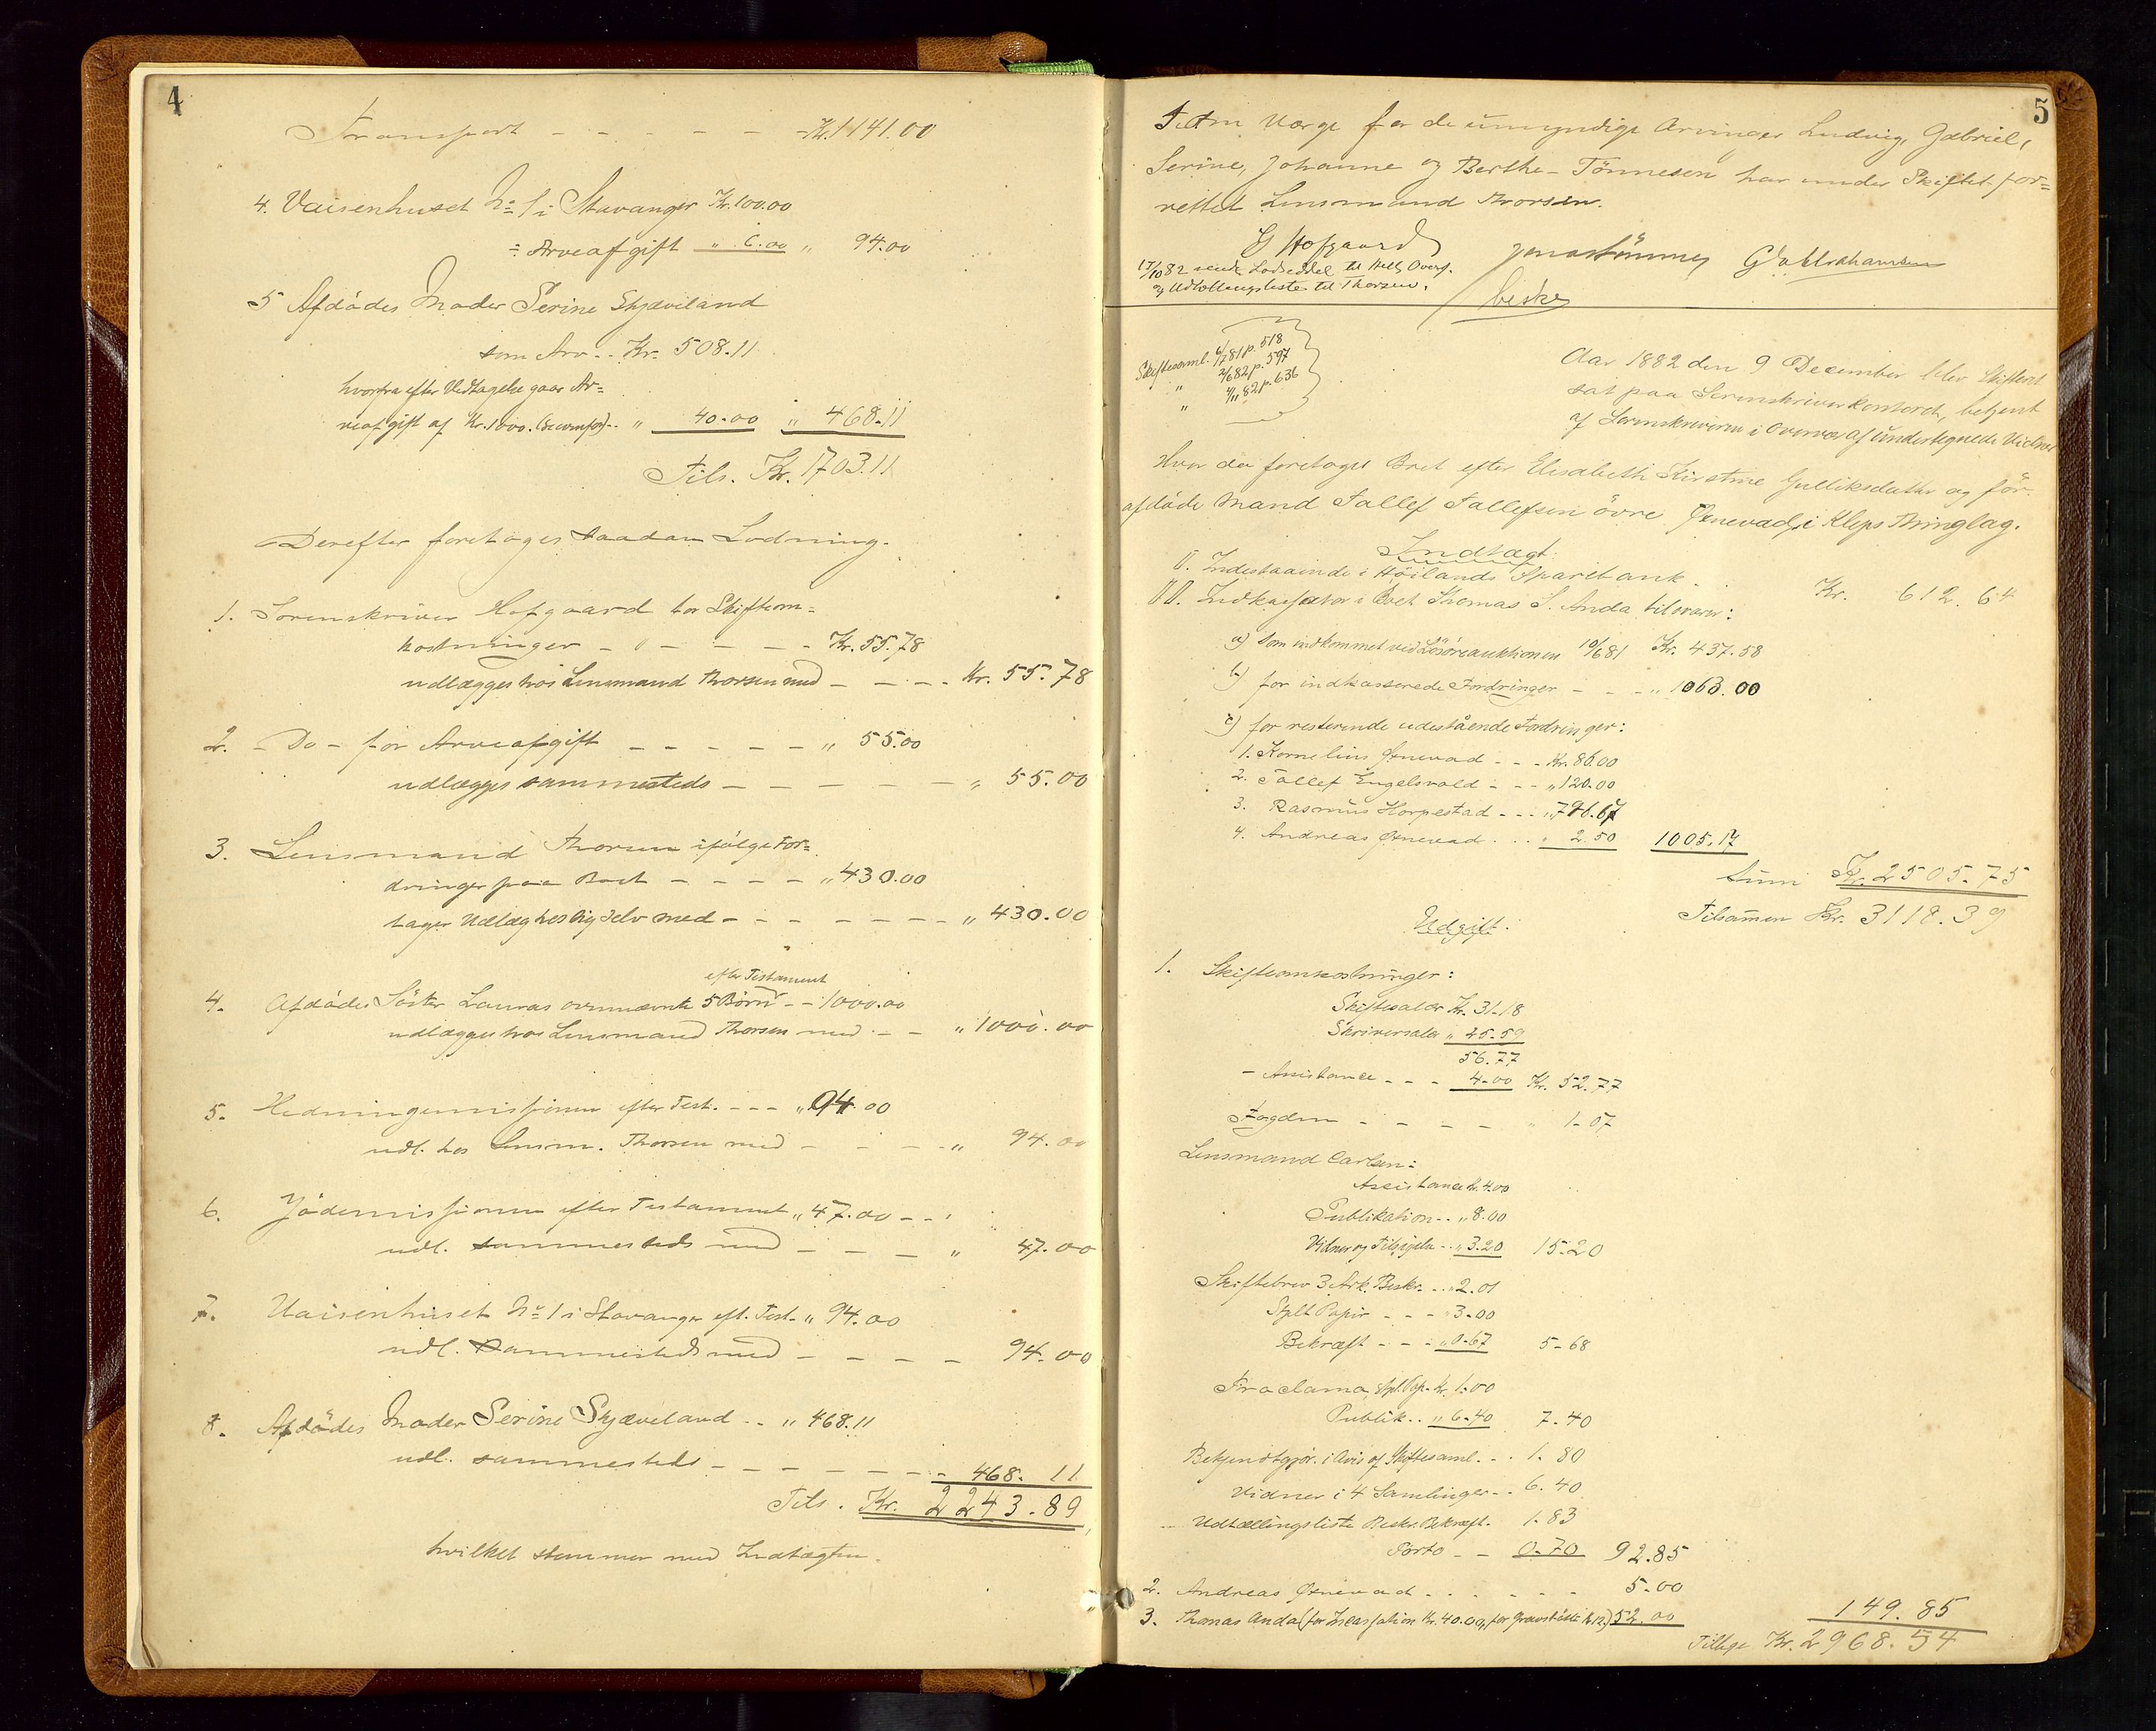 4
Transport - - - - - Kr. 1141.00
4. Vaisenhuset No 1 i Stavanger Kr. 100.00
÷ Arveafgift " 6.00 " 94.00
5 Afdødes Moder Serine Skjæveland
som Arv .. Kr. 508.11
hvorfra efter Vedtagelse gaar Ar=
veafgift af Kr. 1000. " 40.00 " 468.11
Tils. Kr. 1703.11
Derefter foretoges saadan Lodning.
1. Sorenskriver Hofgaard for Skifteom=
kostninger - - - - - Kr. 55.78
udlægges hos Lensmand Thorsen med - - - - Kr. 55.78
2. - Do - for Arveafgift - - - - - " 55.00
udlægges sammesteds - - - - - " 55.00
3. Lensmand Thorsen ifølge For=
dringer paa Boet - - - - " 430.00
tager Udlæg hos sig selv med - - - - - - " 430.00
efter Testament
4. Afdødes Søster Lauras ovennævnte 5 Børn - - 1000.00
udlægges hos Lensmand Thorsen med - - " 1000.00
5. Hedningemissionen efter Test. - - - " 94.00
udl. hos Lensm. Thorsen med - - - - " 94.00
6. Jødemissionen efter Testament " 47.00 - -
udl. sammesteds med - - - " 47.00
7. Vaisenhuset No 1 i Stavanger eft. Test. " 94.00
udl. sammesteds med - - - - 94.00
8. Afdødes Moder Serine Skjæveland .. " 468.11
udl. sammesteds - - - - - - - 468.11
Tils. Kr. 2243.89
hvilket stemmer med Indtægten.
5
Som Værge for de umyndige Arvinger Ludvig, Gabriel,
Serine, Johanne og Berthe Tønnesen har under Skiftet for=
rettet Lensmand Thorsen.
G Hofgaard
17/10 82 sendt Lodseddel til Overf.
og Udlodningsliste til Thorsen.
Skiftesaml. 81 p. 518
" 2/6 82 p. 597
" 82 p. 636
Aar 1882 den 9 December blev Skifteret
sat paa Sorenskriverkontoret, betjent
af Sorenskriveren i Overvær af undertegnede Vidner
Hvor da foretoges Boet efter Elisabeth Kirstine Gulliksdatter og før
afdøde Mand Tallef Tallefsen øvre Ørnevad i Kleps Thinglag.
Indtægt.
I. Indestaaende i Høilands Sparebank. Kr. 612.64
II. Indkassator i Boet Thomas S. Anda tilsvarer:
a) som indkommet ved Løsøreauktionen 10/6 81 Kr. 437.58
b) for indkasserede Fordringer - - - " 1063.00
c) for resterende udestående Fordringer:
1. Kornelius Ørnevad - - - Kr. 86.00
2. Tallef Engelsvold - - - " 120.00
3. Rasmus Horpestad - - - " 796.67
4. Andreas Ørnevad . . . " 2.50 1005.17
Sum Kr. 2505.75
Tilsamen Kr. 3118.39
Udgift.
1. Skifteomkostninger:
Skiftesalær Kr. 31.18
Skriversalær " 25.59
56.77
- Assistance - - - 4.00 Kr. 52.77
Fogden - - - - - " 1.07
Lensmand Carlsen:
Assistance Kr. 4.00
Publikation .. " 8.00
Vidner og Tilsigelse .. " 3.20 15.20
Skiftebrev 3 Ark. Beskr. .. " 2.01
Stplt Papir - - - " 3.00
Bekræft - - - " 0.67 5.68
Proclama, Stpl. Pap. Kr. 1.00
Publik .. " 6.40 7.40
Bekjendtgjør. i Avis af Skiftesaml. . . 1.80
Vidner i 4 Samlinger .. 6.40
Udtællingsliste Beskr. Bekræft. 1.83
Porto - - 0.70 92.85
2. Andreas Ørnevad . . . . . . 5.00
3. Thomas Anda (for Incassation Kr. 40.00, for Gravstøtte Kr. 12.) 52.00 149.85
Tilbage Kr. 2968.54